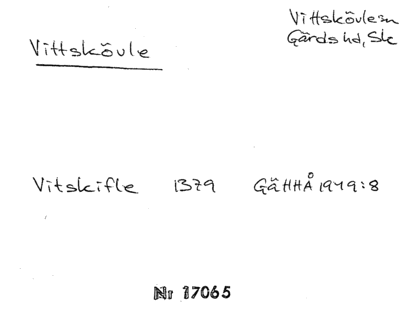 Vittskövle sn
Gärds hd, Sk
Vittskövle
Vitskifle 1379 GäHHÅ 1949:8
Nr 17065